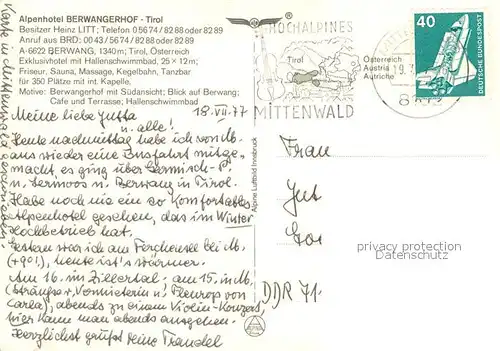 Alpenhotel BERWANGERHOF - Tirol
Besitzer Heinz LITT; Telefon 05674/8288 oder 8289
Anruf aus BRD: 0043/5674/8288 oder 8289
A-6622 BERWANG, 1340m; Tirol, Österreich
Exklusivhotel; Hallenschwimmbad, 25 x 12 m;
Friseur, Sauna, Massage, Kegelbahn, Tanzbar
für 350 Plätze mit int. Kapelle.
Motive: Berwangerhof mit Südansicht; Blick auf Berwang;
Cafe und Terrasse; Hallenschwimmbad
Karte in Mittenwald
18. VII. 77
Meine liebe Jutta
u. alle!
Heute nachmittag habe ich von M.
aus wieder eine Busfahrt mitge-
macht, es ging über Garmisch-P.
n. Lermoos n. Berwang in Tirol.
Habe noch nie ein so komfortables
Alpenhotel gesehen, das im Winter
Hochbetrieb hat.
Gestern war ich am Ferchensee bei M.
(+90!), heute ist's wärmer.
Am 16. im Zillertal; am 15. in M.
(Sträusse v. Vermieterin u. Fleurop von
Carla), abends zu einem Violin-Konzert,
hier kann man abends ausgehen.
Herzlichst grüßt Deine Traudel
Alpine Luftbild Innsbruck
HOCHALPINES
Tirol
MITTENWALD
Österreich
Austria
Autriche
40
DEUTSCHE BUNDESPOST
Frau
Jut
DDR 71
privacy protection
oldthing.de